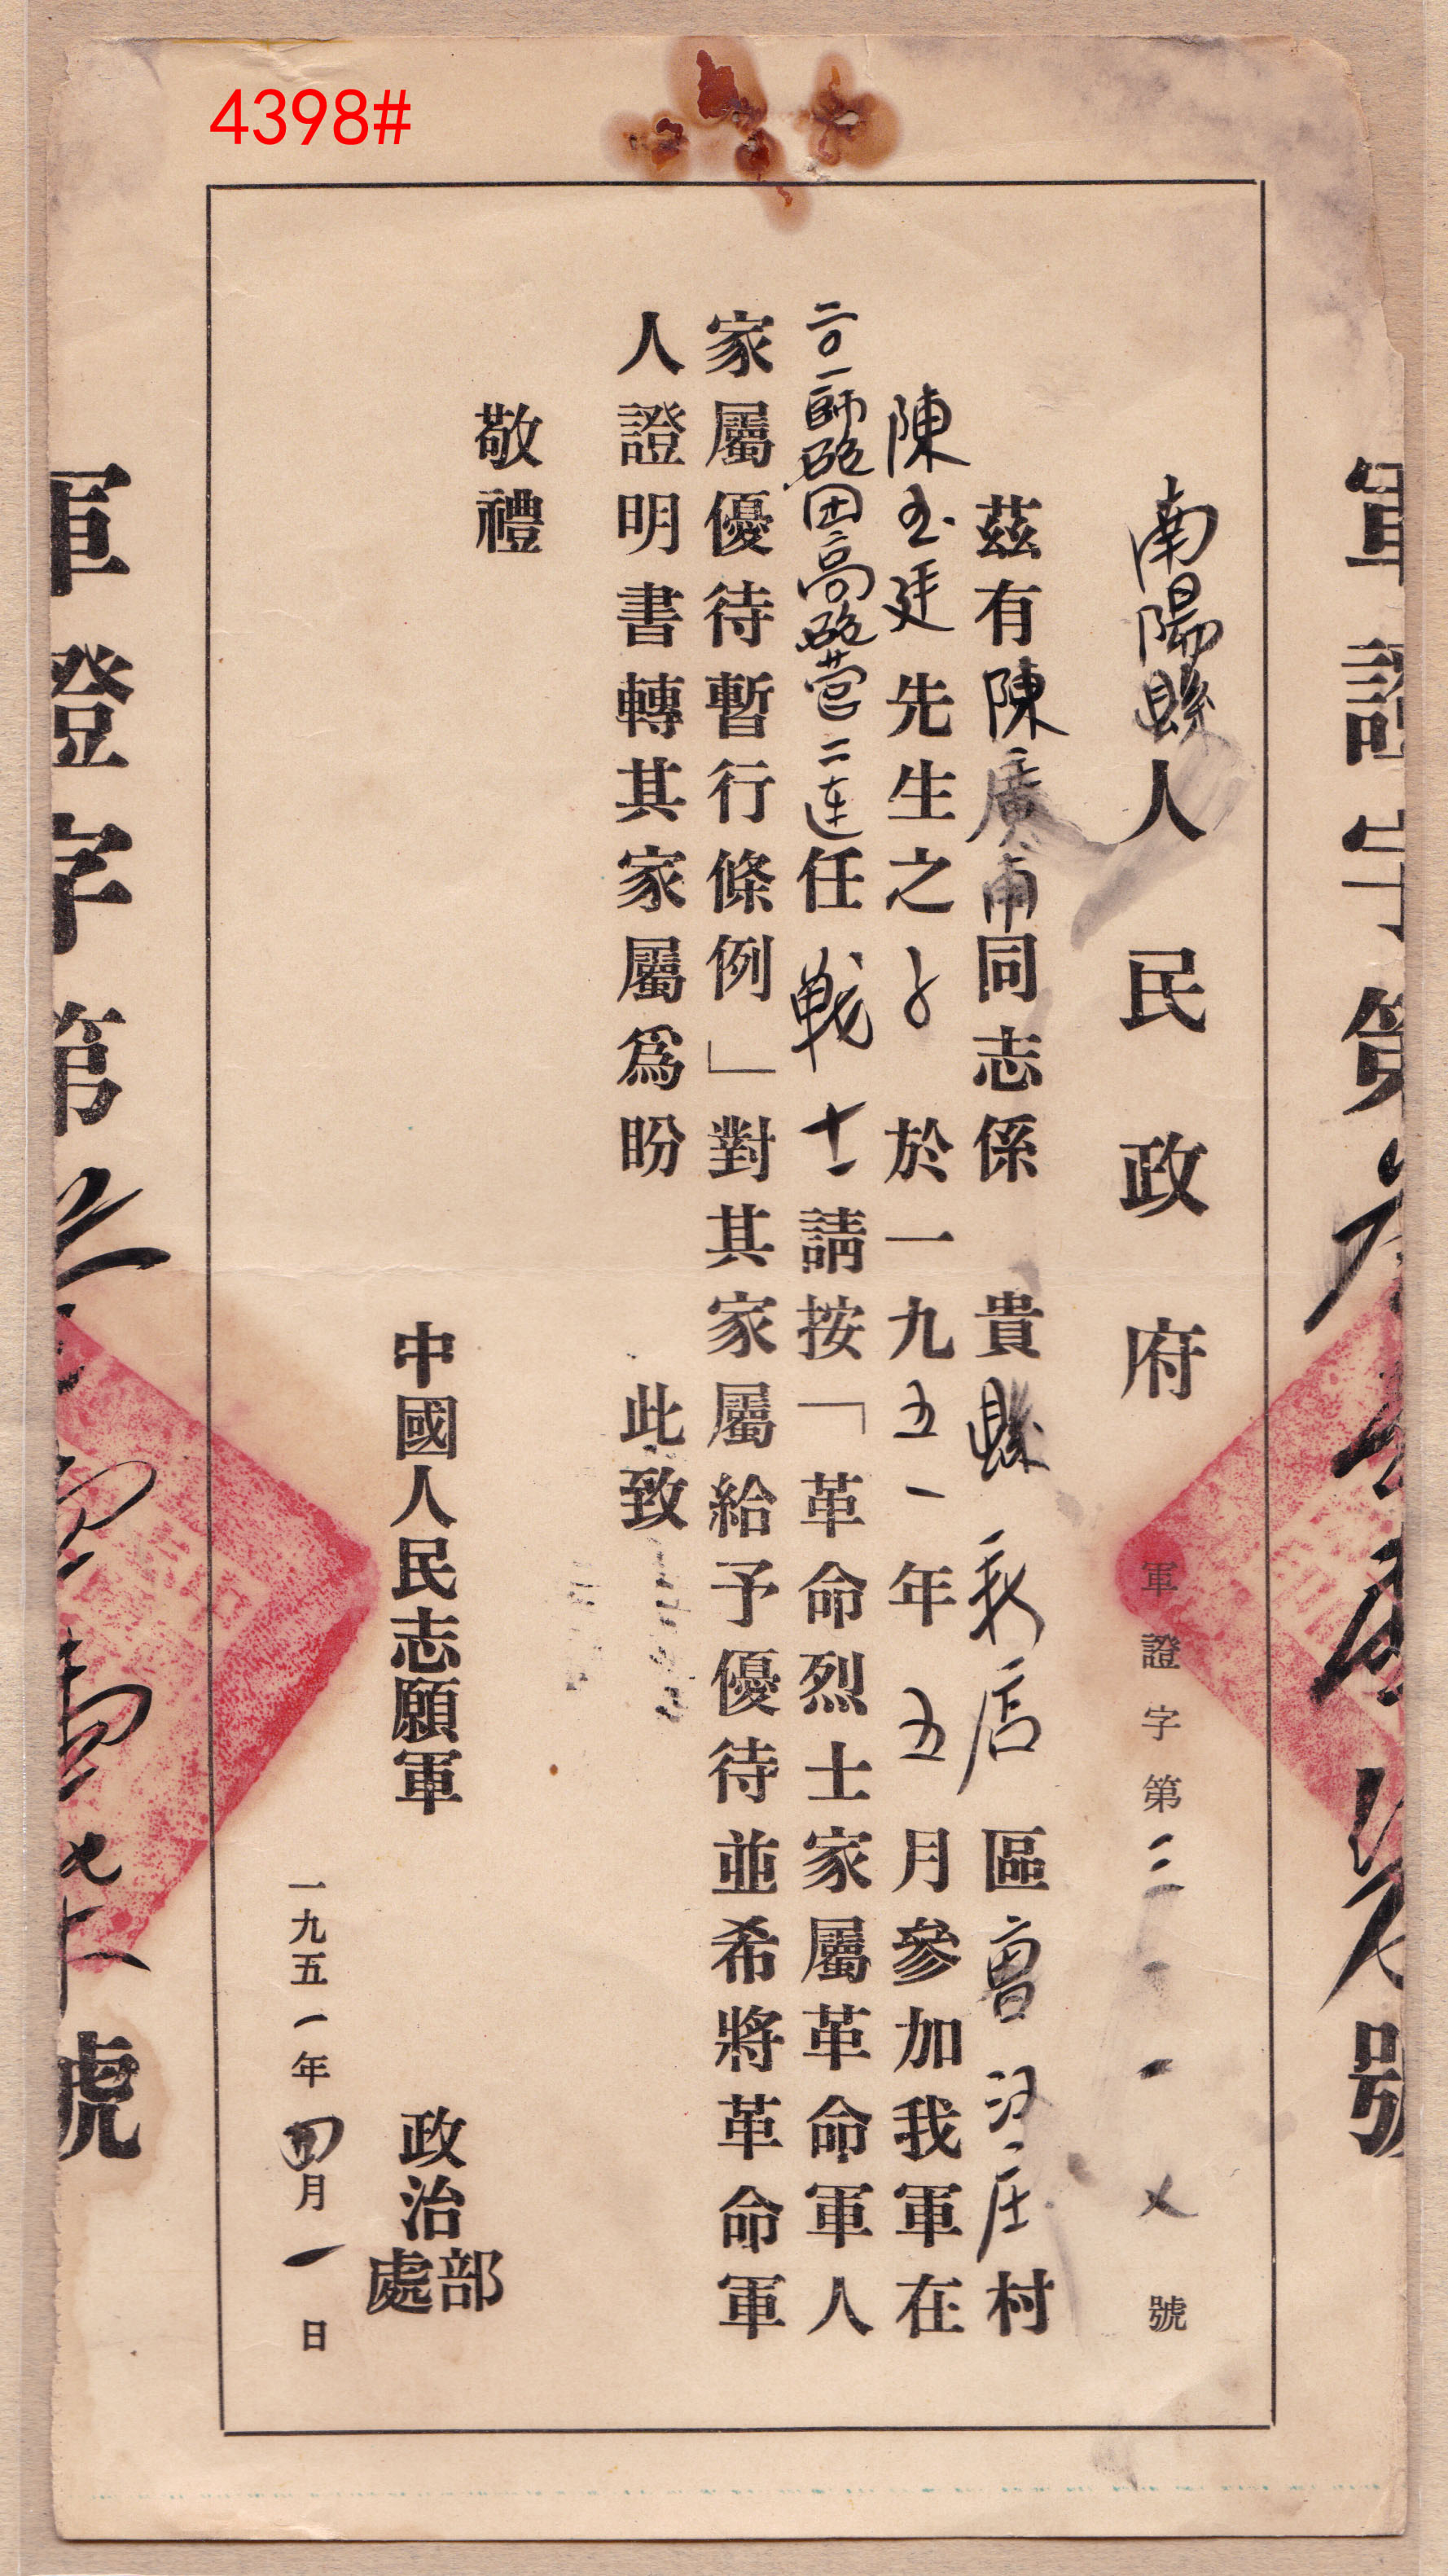 4398#
南陽縣人民政府
軍證字第三一一乂號
茲有陳廣甫同志係貴縣新店區曹江庄村
陳玉廷先生之子於一九五一年五月參加我軍在
二〇一師砲团高砲营二连任戰士請按「革命烈士家屬革命軍人
家屬優待暫行條例」對其家屬給予優待並希將革命軍
人證明書轉其家屬爲盼
此致
敬禮
中國人民志願軍
政治部
處
一九五一年月一日
軍證字第號
軍證字第號